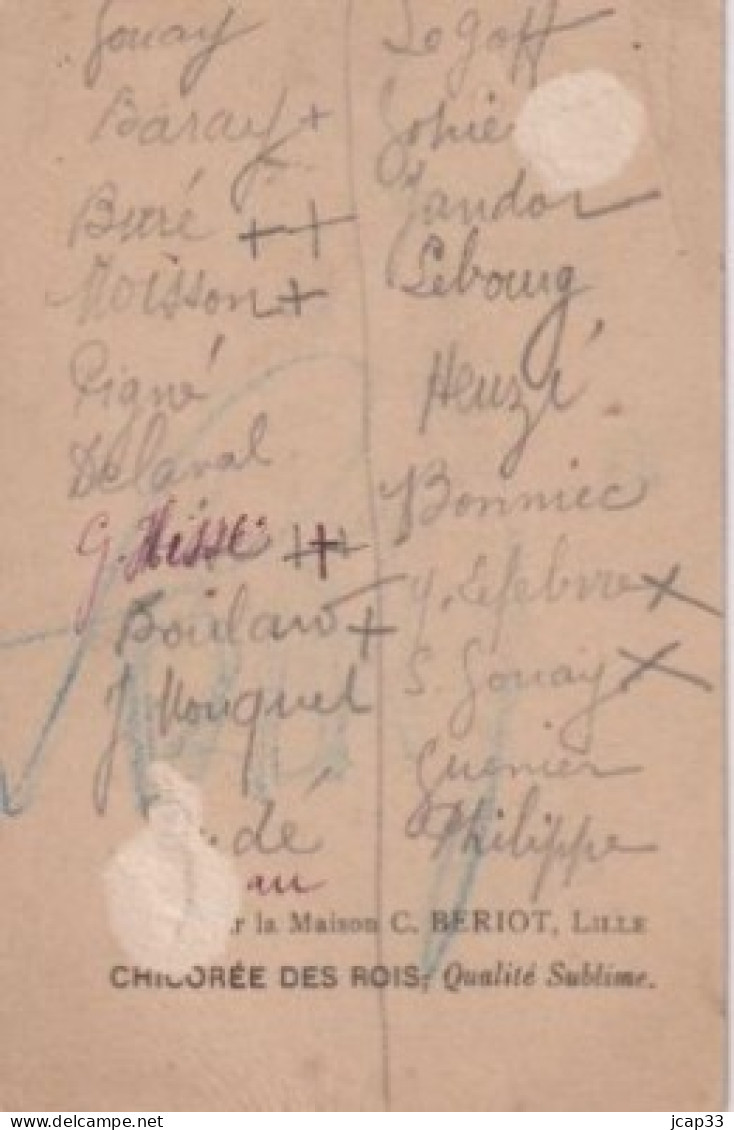 Gouay
Baray +
Buré ++
Moisson +
Pigné
Delaval
G. Hisse +++
Boulan +
J. Mouquet
dé
au
Le Goff
Gohie
Landor
Lebourg
Heuzé
Bonniec
Y. Lefebvre x
S. Gouay x
Guenier
Philippe
r la Maison C. BERIOT, LILLE
CHICORÉE DES ROIS, Qualité Sublime.
delcampe.net
jcap33